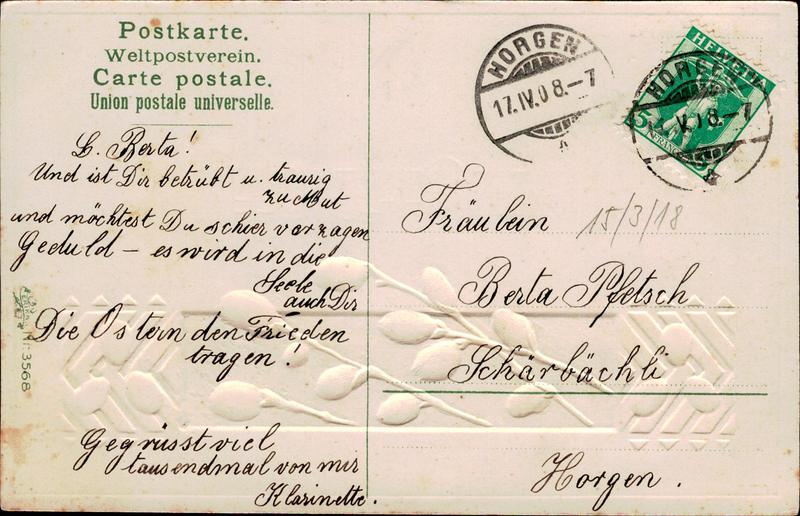 Postkarte.
Weltpostverein.
Carte postale.
Union postale universelle.
L. Berta!
Und ist Dir betrübt u. traurig
zu Mut
und möchtest Du schier verzagen
Geduld – es wird in die
Seele
auch Dir
Die Ostern den Frieden
tragen!
Gegrüsst viel
tausendmal von mir
Klarinette.
Nr. 3568
HORGEN
17.IV.08.-7
HELVETIA
HORGEN
V.08.-7
5
FRANCO
Fräulein
15/3/18
Berta Pfetsch
Schärbächli
Horgen.